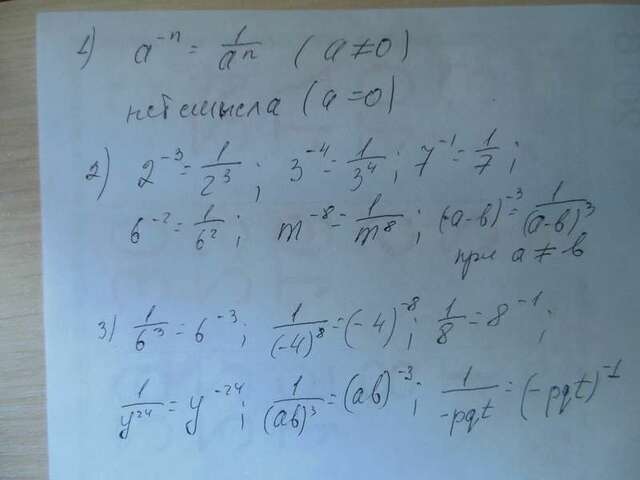 1) a⁻ⁿ = 1/aⁿ (a ≠ 0)
нет смысла (a = 0)
2) 2⁻³ = 1/2³; 3⁻⁴ = 1/3⁴; 7⁻¹ = 1/7;
6⁻² = 1/6²; m⁻⁸ = 1/m⁸; (a-b)⁻³ = 1/(a-b)³
при a ≠ b
3) 1/6³ = 6⁻³; 1/(-4)⁸ = (-4)⁻⁸; 1/8 = 8⁻¹;
1/y²⁴ = y⁻²⁴; 1/(ab)³ = (ab)⁻³; 1/-pqt = (-pqt)⁻¹